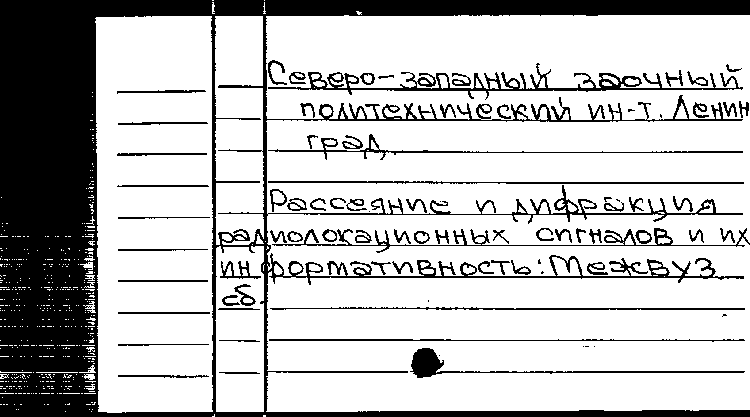 Северо-западный заочный
политехнический ин-т. Ленин
град.
Рассеяние и дифракция
радиолокационных сигналов и их
информативность: Межвуз.
сб.